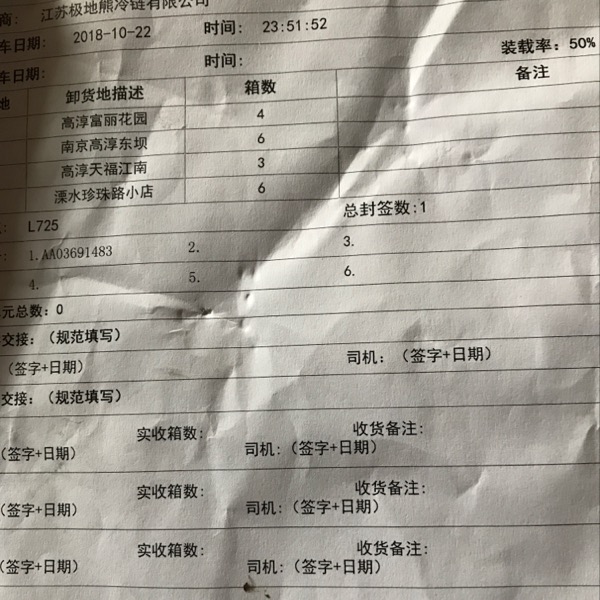 商: 江苏极地熊冷链有限公司
车日期: 2018-10-22 时间: 23:51:52
车日期: 时间: 装载率: 50%
地 卸货地描述 箱数 备注
高淳富丽花园 4
南京高淳东坝 6
高淳天福江南 3
溧水珍珠路小店 6
: L725 总封签数:1
1.AA03691483 2. 3.
4. 5. 6.
元总数: 0
交接: (规范填写)
(签字+日期) 司机: (签字+日期)
交接: (规范填写)
实收箱数: 收货备注:
(签字+日期) 司机: (签字+日期)
实收箱数: 收货备注:
(签字+日期) 司机: (签字+日期)
实收箱数: 收货备注:
(签字+日期) 司机: (签字+日期)